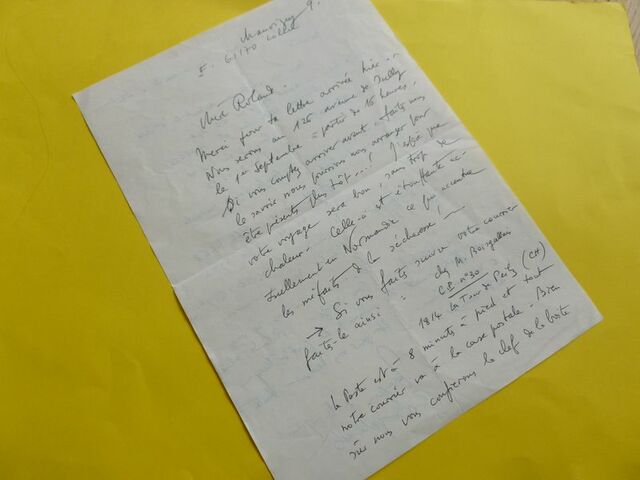 F. 61170
Cher Roland.
Merci pour ta lettre arrivée hier.
Nous serons au 125 avenue de Sully
le 1er Septembre à partir de 15 heures.
Si vous comptez arriver avant, faites nous
le savoir nous pourrions nous arranger pour
être présents plus tôt...! J'espère que
votre voyage sera bon! sans trop de
chaleur. Celle-ci est étouffante ac-
tuellement en Normandie ce qui accentue
les méfaits de la sécheresse!
→ Si vous faites suivre votre courrier
faites-le ainsi: chez M.
C.P. n°30
1814 La Tour de Peilz (CH)
La Poste est à 8 minutes à pied et tout
notre courrier va à la case postale. Bien
sûr nous vous confierons la clef de la boîte